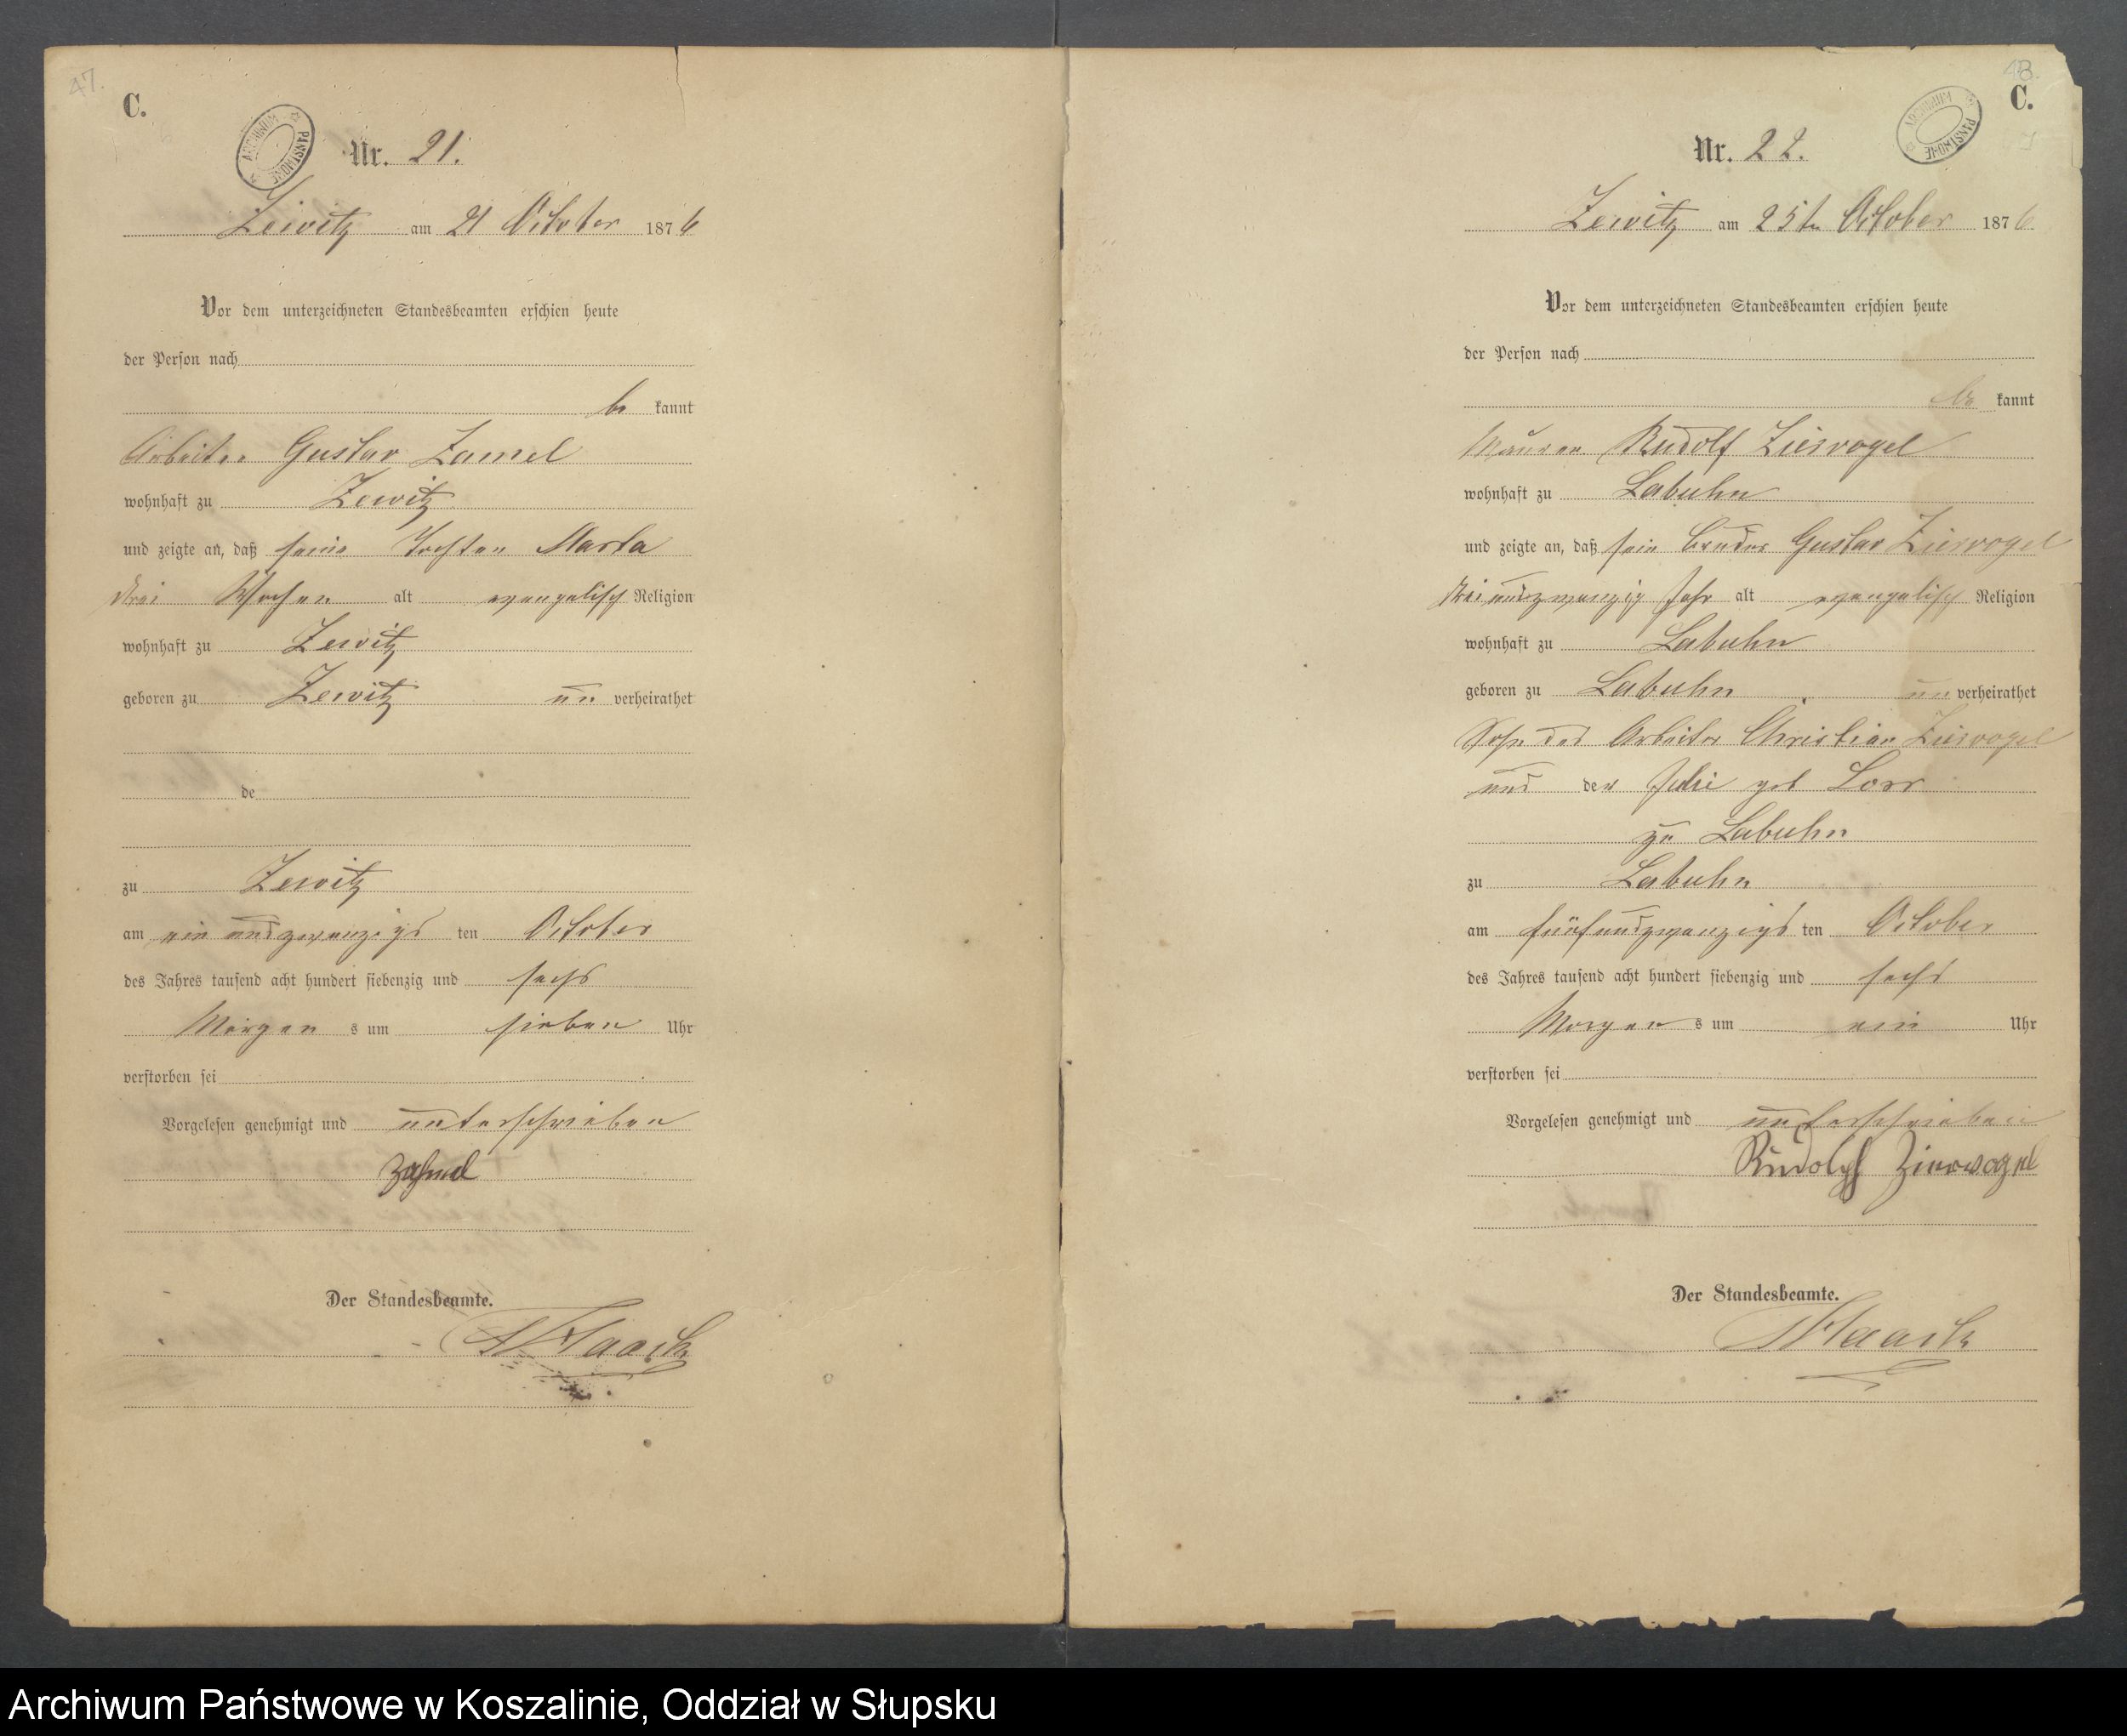 47.
C.
ARCHIWUM PAŃSTWOWE
Nr. 21.
Zewitz am 21 October 1876
Vor dem unterzeichneten Standesbeamten erschien heute
der Person nach
be kannt
Arbeiter Gustav Zamel
wohnhaft zu Zewitz
und zeigte an, daß seine Tochter Marta
drei Wochen alt evangelisch Religion
wohnhaft zu Zewitz
geboren zu Zewitz un verheirathet
de
zu Zewitz
am ein und zwanzigs ten October
des Jahres tausend acht hundert siebenzig und sechs
Morgen s um sieben Uhr
verstorben sei
Vorgelesen genehmigt und unterschrieben
Zahmel
Der Standesbeamte.
Haack
48.
C.
ARCHIWUM PAŃSTWOWE
Nr. 22.
Zewitz am 25ten October 1876
Vor dem unterzeichneten Standesbeamten erschien heute
der Person nach
be kannt
Maurer Rudolf Ziervogel
wohnhaft zu Labuhn
und zeigte an, daß sein Bruder Gustav Ziervogel
drei und zwanzig Jahr alt evangelisch Religion
wohnhaft zu Labuhn
geboren zu Labuhn un verheirathet
Sohn des Arbeiter Christian Ziervogel
und der Julie geb
zu Labuhn
zu Labuhn
am fünfundzwanzigs ten October
des Jahres tausend acht hundert siebenzig und sechs
Morgen s um ein Uhr
verstorben sei
Vorgelesen genehmigt und unterschrieben
Rudolph Zierwogel
Der Standesbeamte.
Haack
Archiwum Państwowe w Koszalinie, Oddział w Słupsku